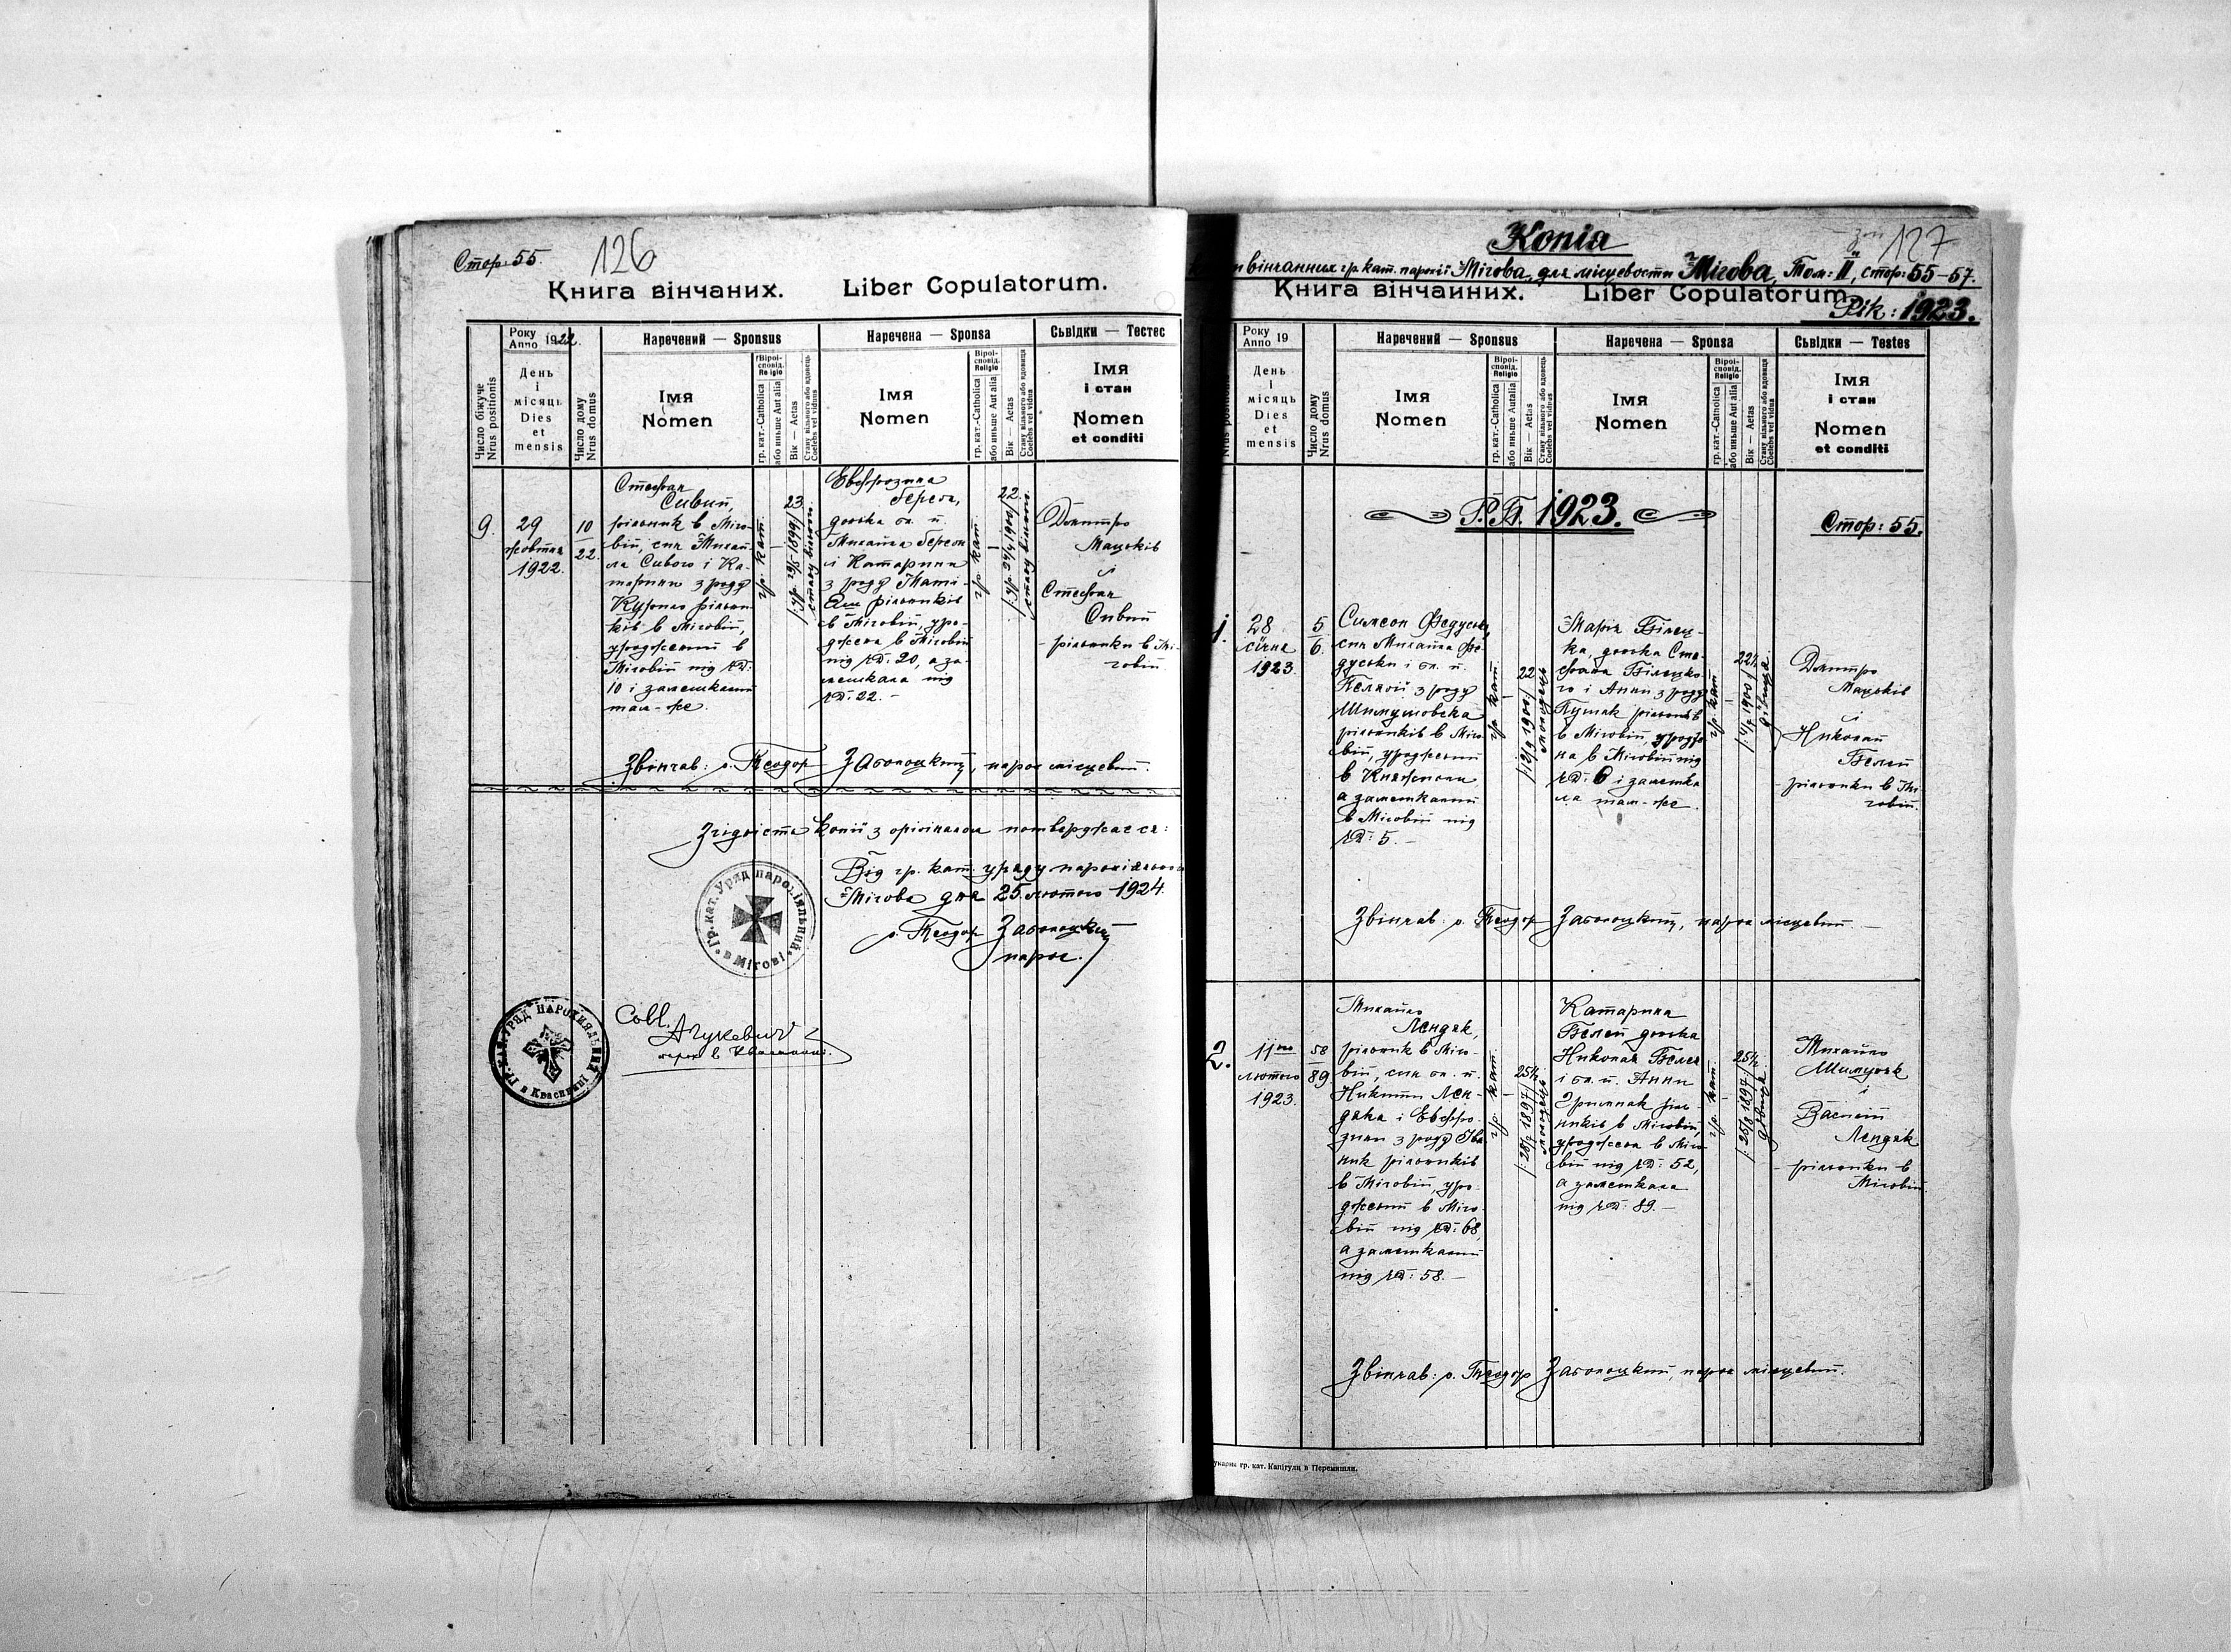 Стор: 55.
126
Книга вінчаних. Liber Copulatorum.
Число біжуче
Nrus positionis
Року
Anno 1922.
День
і
місяць
Dies
et
mensis
Число дому
Nrus domus
Наречений — Sponsus
Імя
Nomen
Віроі-
сповід.
Religio
гр. кат.-Catholica
або иньше Aut alia
Вік — Aetas
Стану вільного або вдовець
Coelebs vel viduus
Наречена — Sponsa
Імя
Nomen
Віроі-
сповід.
Religio
гр. кат.-Catholica
або иньше Aut alia
Вік — Aetas
Стану вільного або вдовиця
Coelebs vel vidua
Сьвідки — Тестес
Імя
і стан
Nomen
et conditi
9.
29
жовтня
1922.
10
22.
Стефан
Сивий,
рільник в Міго-
вій, син Михай-
ла Сивого і Ка-
тарини з роду
рільни-
ків в Міговій,
уроджений в
Міговій під чд:
10 і замешкалий
там-же.
гр. кат.
23.
/:ур. 29/5 1899/
стану вільного
Евфрозина
Береза,
дочка бл. п.
Михайла Берези
і Катарини
з роду
рільників
в Міговій, уро-
джена в Міговій
під чд: 20, а за-
мешкала під
чд: 22.-
гр. кат.
22.
стану вільного
Дмитро
Мацьків
і
Стефан
Сивий
- рільники в Мі-
говій
Звінчав: о. Теодор Заболоцкий, парох місцевий.
Згідність копії з оріґіналом потверджає ся:
Від гр. кат. уряду парохіяльного
Мігова дня 25 лютого 1924.
о. Теодор Заболоцкий
парох.
Гр. кат. Уряд парохіяльний в Мігові
Coll.
парох в Квасенині.
ГР. КАТ. УРЯД ПАРОХІЯЛЬНИЙ в Квасенині
127
Копія
вінчанних гр. кат. парохії Мігова, для місцевости Мігова, Том: II, стор: 55-57.
Книга вінчаиних. Liber Copulatorum.
Рік: 1923.
Nrus positionis
Року
Anno 19
День
і
місяць
Dies
et
mensis
Число дому
Nrus domus
Наречений — Sponsus
Імя
Nomen
Віроі-
сповід.
Religio
гр. кат.-Catholica
або иньше Aut alia
Вік — Aetas
Стану вільного або вдовець
Coelebs vel viduus
Наречена — Sponsa
Імя
Nomen
Віроі-
сповід.
Religio
гр. кат.-Catholica
або иньше Aut alia
Вік — Aetas
Стану вільного або вдовиця
Coelebs vel vidua
Сьвідки — Testes
Імя
і стан
Nomen
et conditi
Р.Б. 1923.
Стор: 55.
1.
28
січня
1923.
5
6.
Симеон Федусько,
син Михайла Фе-
дуська і бл. п.
Теклї з роду
Шимушовска
рільників в Міго-
вій, уроджений
в Княжполи
а замешкалий
в Міговій під
чд: 5.-
гр. кат.
22
/:12/9 1900:/
молодець
Марія Білец-
ка, дочка Сте-
фана Білецко-
го і Анни з роду
рільників
в Міговій, уродже-
на в Міговій під
чд: 6 і замешка-
ла там-же.
гр. кат.
22½
дівиця.
Дмитро
Мацьків
і
Николай
Белей
- рільники в Мі-
говій.
Звінчав: о. Теодор Заболоцкий, парох місцевий.-
2.
11го
лютого
1923.
58
89
Михайло
Лендяк,
рільник в Міго-
вій, син бл. п.
Никити Лен-
дяка і Евфро-
зини з роду Іва-
ник рільників
в Міговій, уро-
джений в Міго-
вій під чд: 68,
а замешкалий
під чд: 58.-
гр. кат.
25½
/:28/7 1897:/
молодець
Катарина
Белей дочка
Николая Белея
і бл. п. Анни
Грииняк ріль-
ників в Міговій,
уроджена в Міго-
вій під чд: 52,
а замешкала
під чд: 89.-
гр. кат.
25½
/:25/8 1897:/
дівиця.
Михайло
Шимчик
і
Василій
Лендяк
- рільники в
Міговій.
Звінчав: о. Теодор Заболоцкий, парох місцевий.
гр. кат. Капітули в Перемишли.